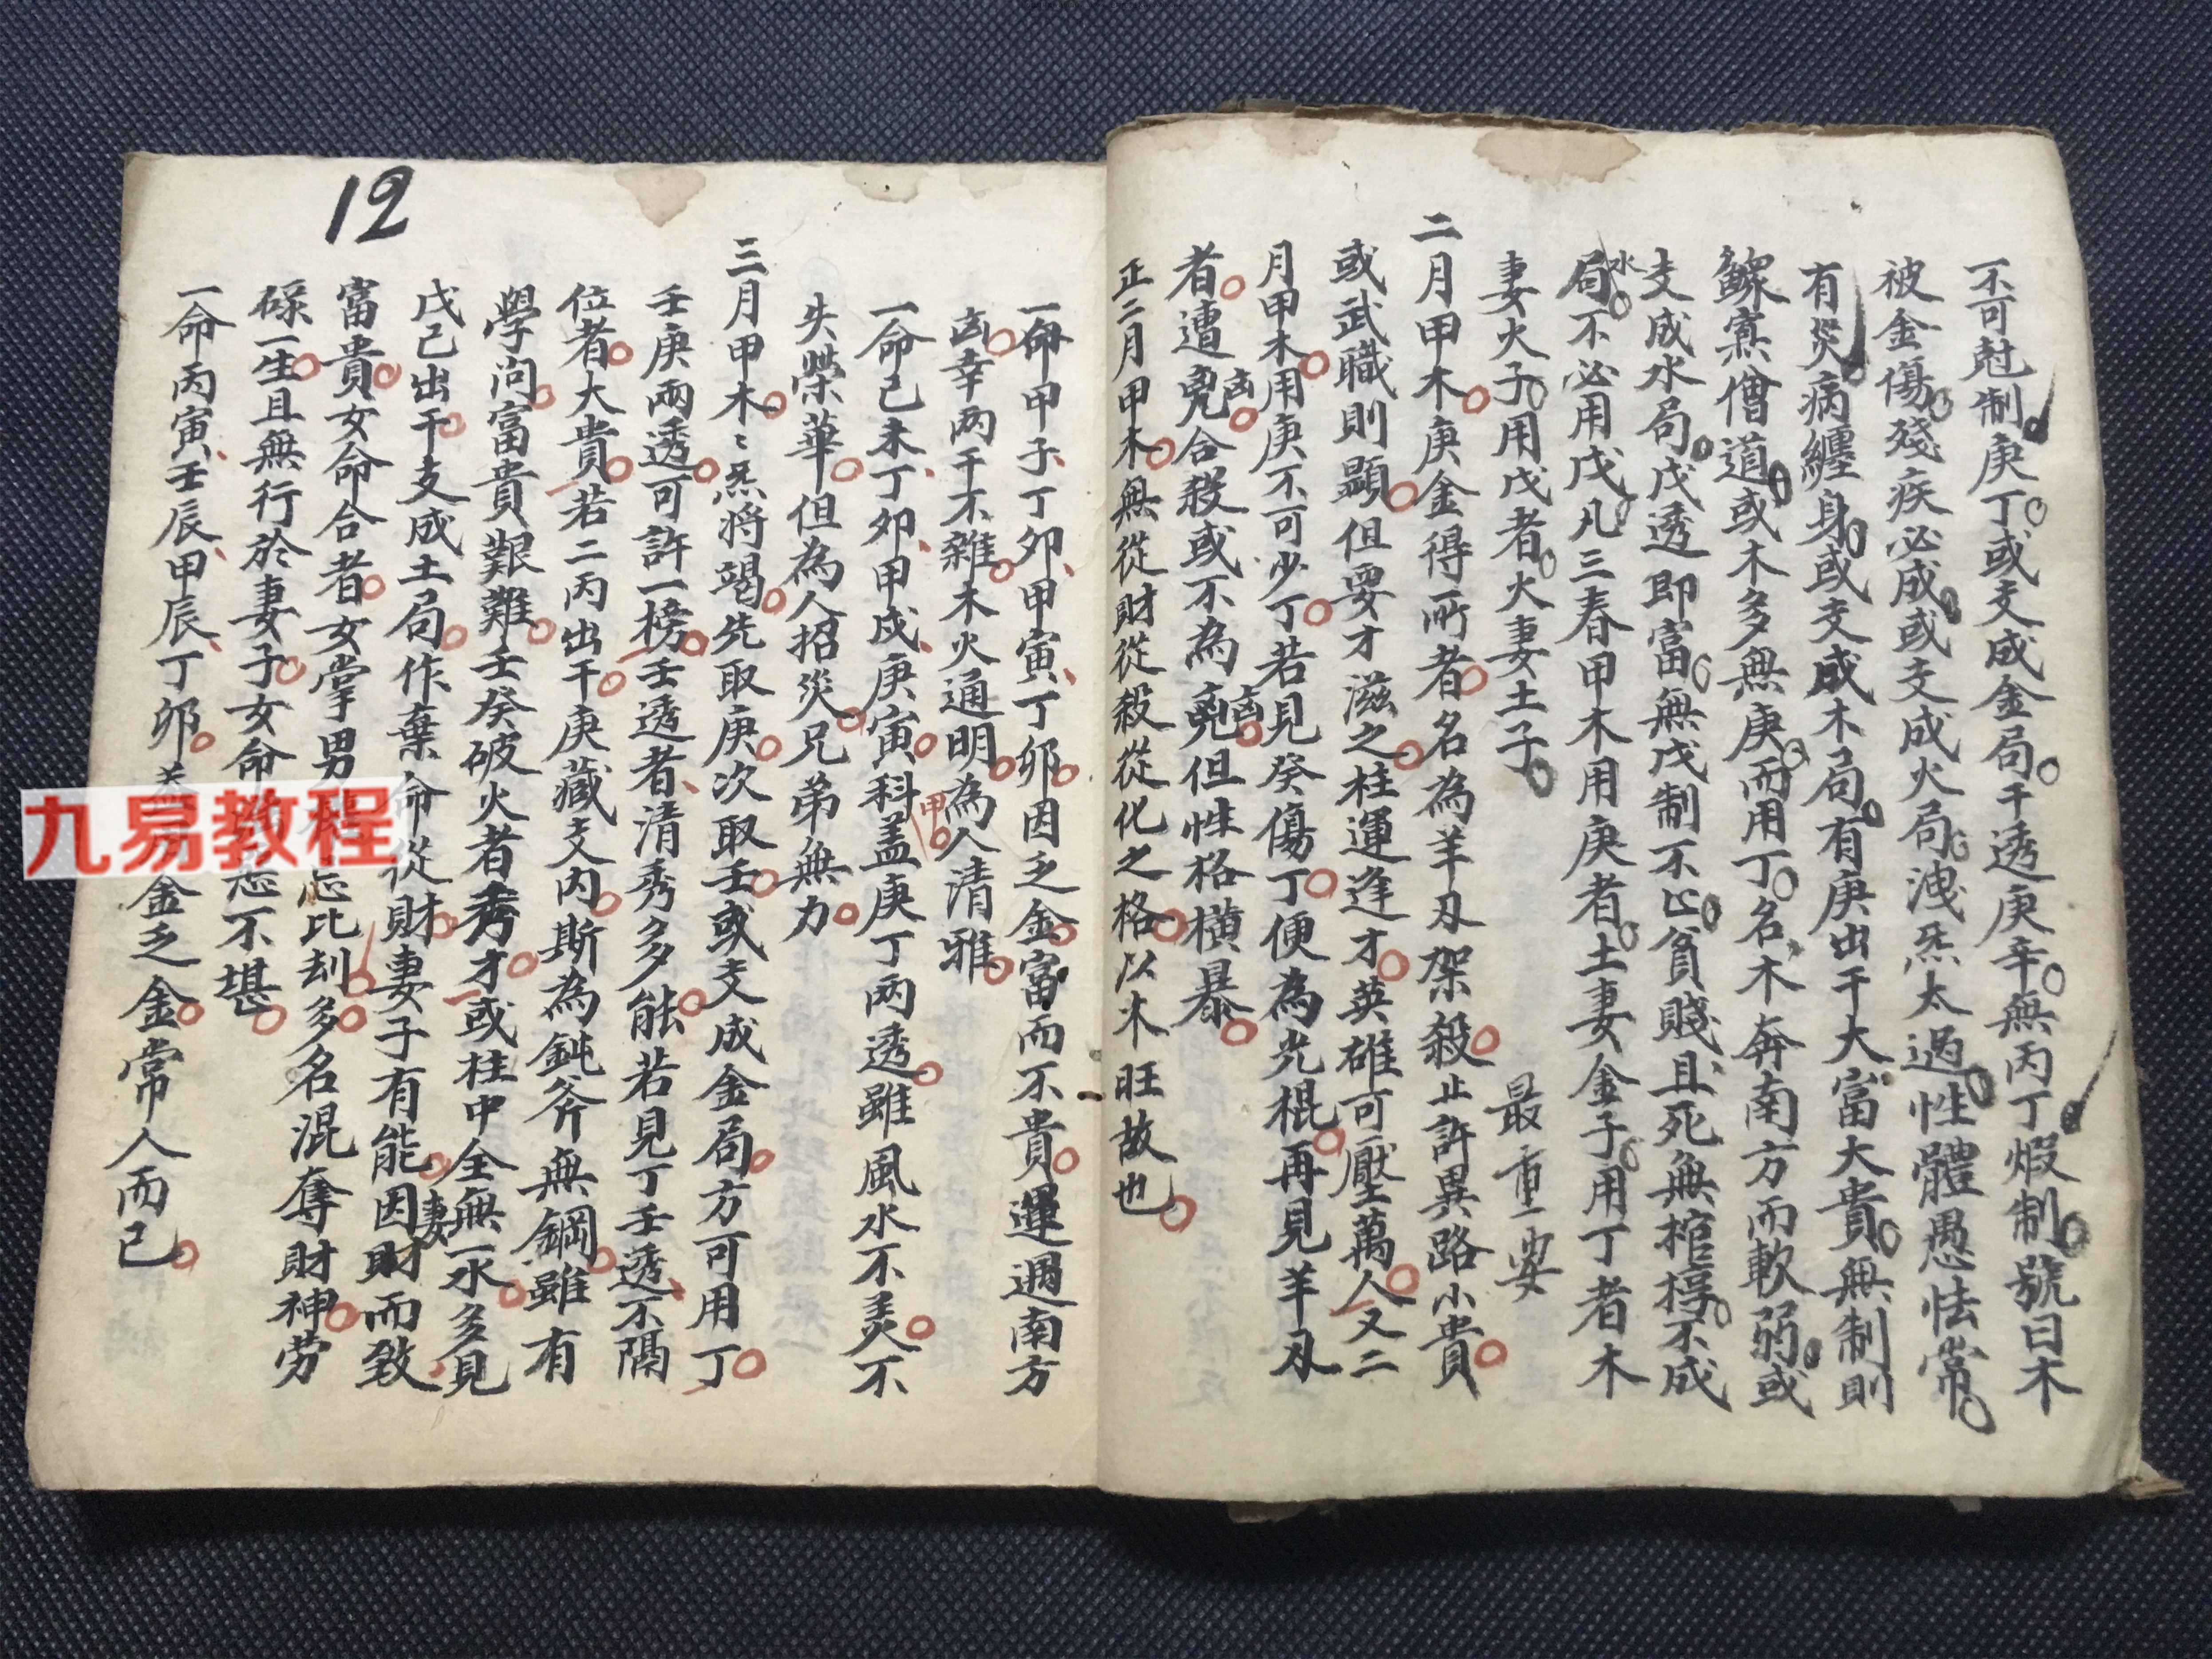 不可尅制庚丁或支成金局干透庚辛無丙丁煅制號曰木
被金傷殘疾必成或支成火局洩炁太過性體愚怯常
有災病纏身或支成木局有庚出干大富大貴無制則
鰥寡僧道或木多無庚而用丁名木奔南方而軟弱或
支成水局戊透即富無戊制不止貧賤且死無棺槨不成
水
局不必用戊凡三春甲木用庚者土妻金子用丁者木
妻火子用戊者火妻土子
最重一要
二月甲木庚金得所者名為羊刃架殺止許異路小貴
或武職則顯但要才滋之柱運逢才英雄可壓萬人又二
月甲木用庚不可少丁若見癸傷丁便為光棍再見羊刃
者遭兇合殺或不為兇但性格橫暴
凶
凶
正二月甲木無從財從殺從化之格以木旺故也
一命甲子丁卯甲寅丁卯因乏金富而不貴運過南方
凶幸两干不雜木火通明為人清雅
甲
一命己未丁卯甲戌庚寅科盖庚丁两透雖風水不美不
失榮華但為人招災兄弟無力
三月甲木〻炁將竭先取庚次取壬或支成金局方可用丁
壬庚兩透可許一榜壬透者清秀多能若見丁壬透不隔
位者大貴若二丙出干庚藏支内斯為鈍斧無鋼雖有
學问富貴艱難壬癸破火者秀才或柱中全無一水多見
戊己出干支成土局作棄命從財妻子有能因財而致
妻
富貴女命合者女掌男
比刦多名混奪財神勞
碌一生且無行於妻子女命
不堪
一命丙寅壬辰甲辰丁卯
金乏金常人而已
12
九易教程